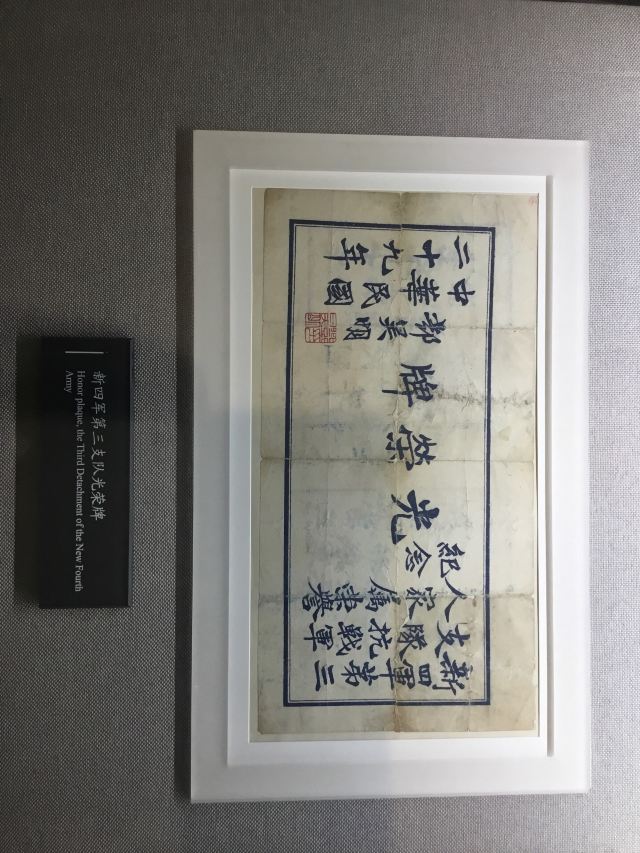 新四軍第三
支隊抗戰軍
人家属榮譽
紀念
光榮牌
吳明
中華民國
二十九年
新四军第三支队光荣牌
Honor plaque, the Third Detachment of the New Fourth
Army